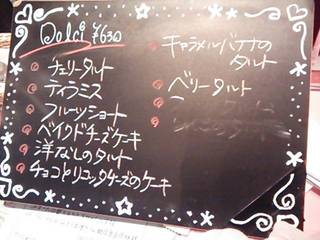 Dolci ¥630
チェリータルト
ティラミス
フルーツショート
ベイクドチーズケーキ
洋なしのタルト
チョコとリコッタチーズのケーキ
キャラメルバナナの
タルト
ベリータルト